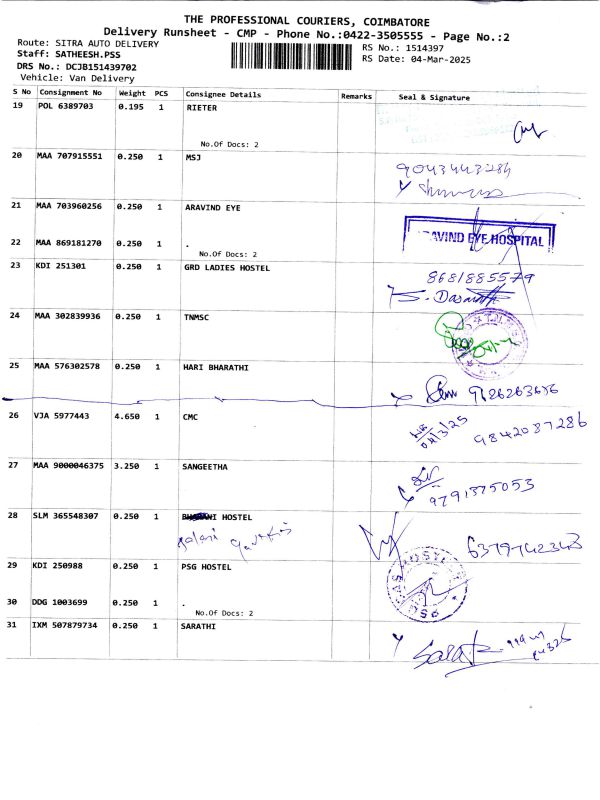 THE PROFESSIONAL COURIERS, COIMBATORE
Delivery Runsheet - CMP - Phone No.:0422-3505555 - Page No.:2
Route: SITRA AUTO DELIVERY
Staff: SATHEESH.PSS
RS No.: 1514397
DRS No.: DCJB151439702
RS Date: 04-Mar-2025
Vehicle: Van Delivery
S No Consignment No Weight PCS Consignee Details Remarks Seal & Signature
19 POL 6389703 0.195 1 RIETER
No.Of Docs: 2
20 MAA 707915551 0.250 1 MSJ
9043443284
21 MAA 703960256 0.250 1 ARAVIND EYE
22 MAA 869181270 0.250 1 .
ARAVIND EYE HOSPITAL
No.Of Docs: 2
23 KDI 251301 0.250 1 GRD LADIES HOSTEL
8681885579
24 MAA 302839936 0.250 1 TNMSC
25 MAA 576302578 0.250 1 HARI BHARATHI
26 VJA 5977443 4.650 1 CMC
04/3/25 9842087286
27 MAA 9000046375 3.250 1 SANGEETHA
9791575053
28 SLM 365548307 0.250 1 HOSTEL
6379742343
29 KDI 250988 0.250 1 PSG HOSTEL
30 DDG 1003699 0.250 1 .
No.Of Docs: 2
31 IXM 507879734 0.250 1 SARATHI